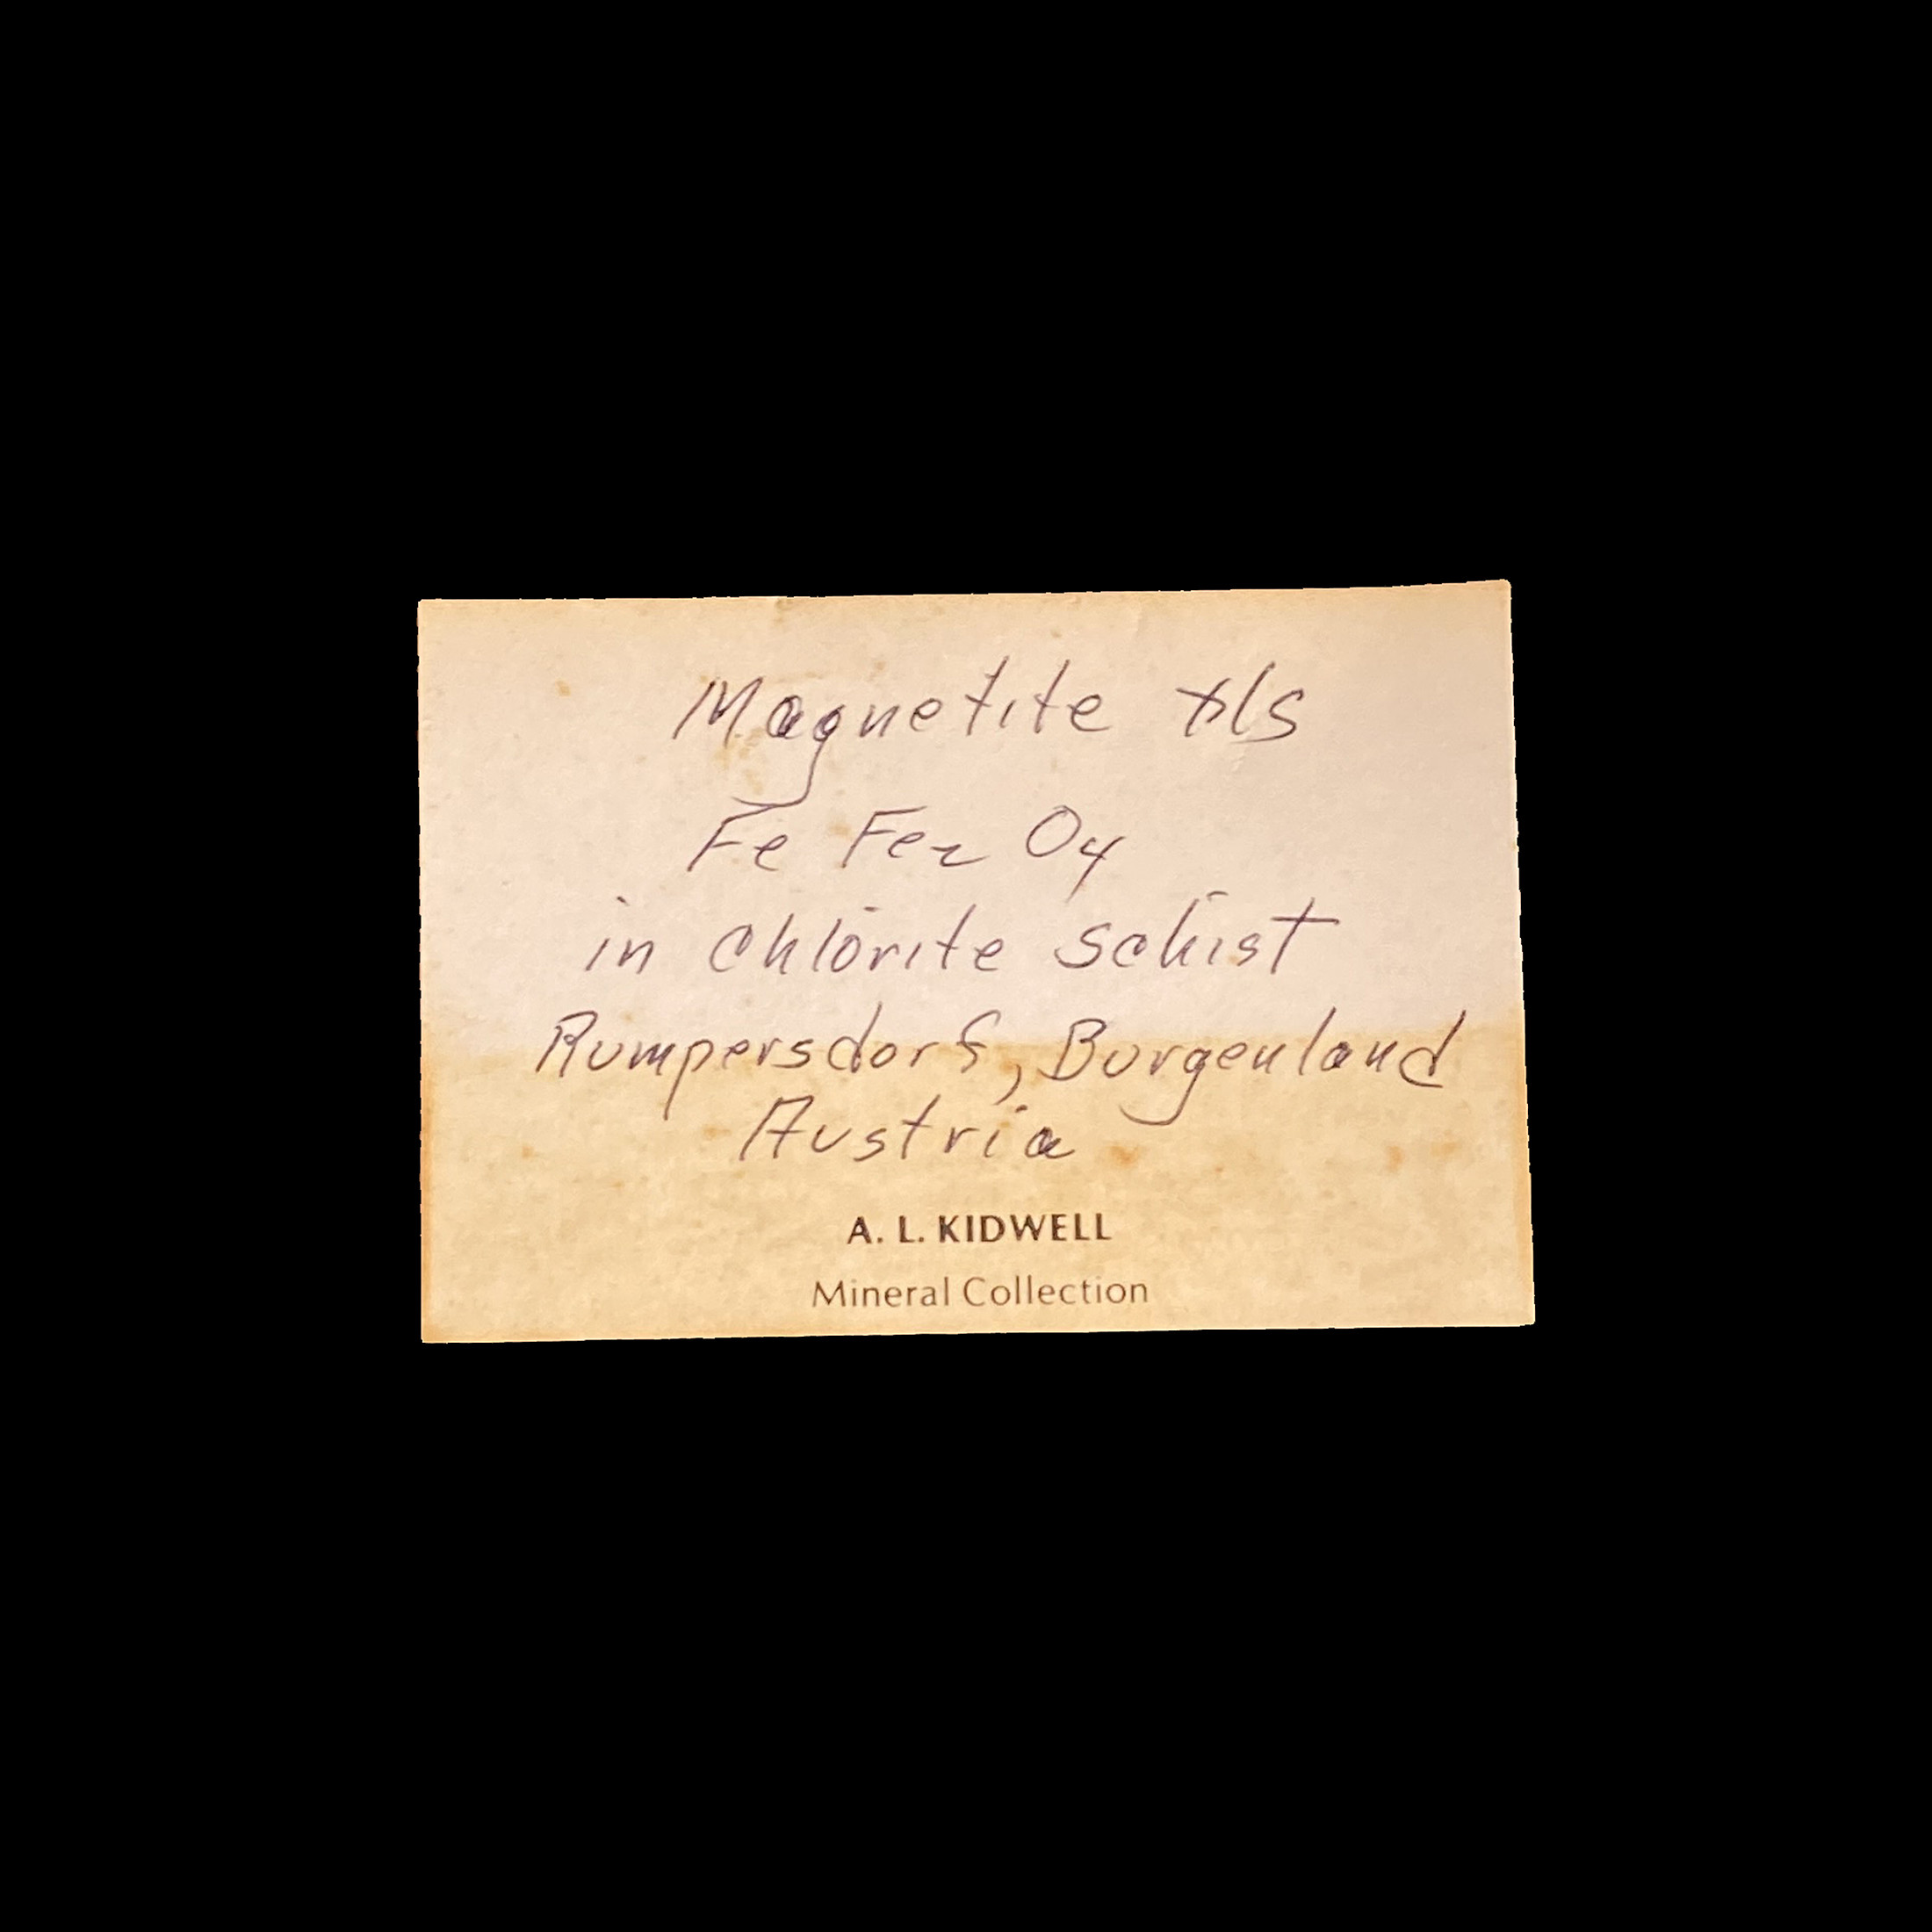 Magnetite xls
Fe Fe₂ O₄
in Chlorite Schist
Rumpersdorf, Burgenland
Austria
A. L. KIDWELL
Mineral Collection